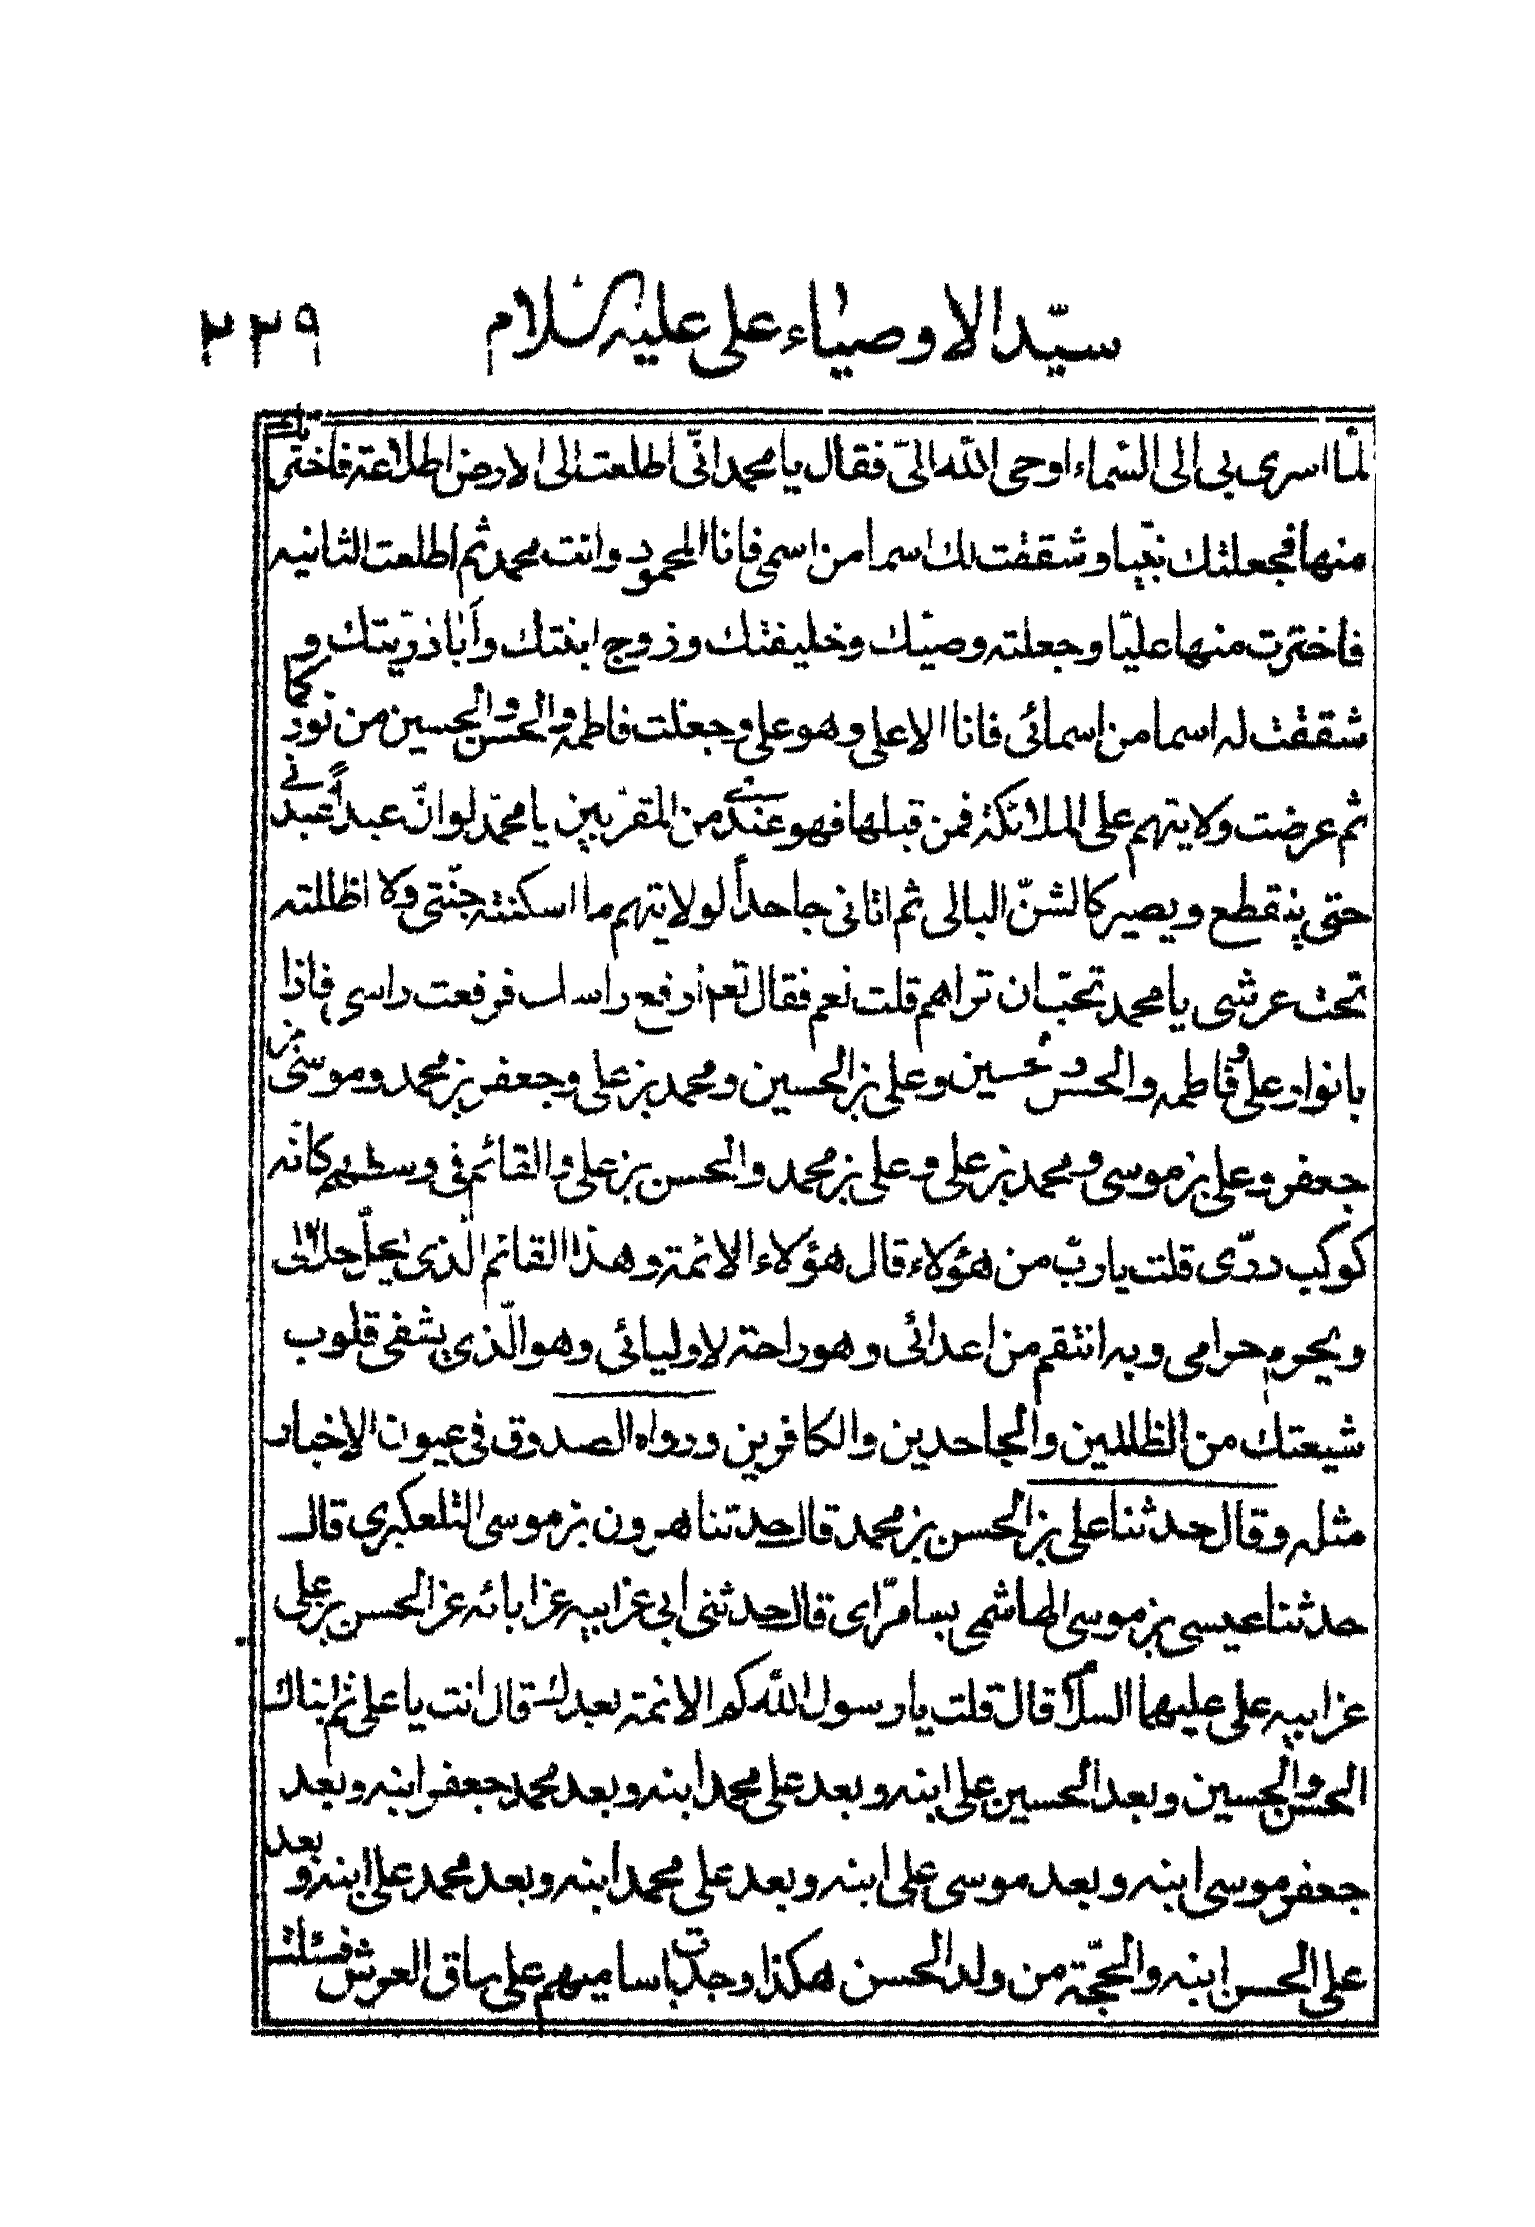 سيّد الاوصياء على عليه السلام ٢٢٩
لمّا اسرى بى الى السّماء اوحى اللّه الىّ فقال يا محمد انّى اطلعت الى الارض اطلاعة فاخترتك
منها فجعلتك نبيّا و شققت لك اسما من اسمى فانا المحمود و انت محمد ثم اطلعت الثانيه
فاخترت منها عليّا و جعلته وصيّك و خليفتك و زوج ابنتك و أبا ذريتك و
شققت له اسما من اسمائى فانا الاعلى و هو على و جعلت فاطمه و الحسن و الحسين من نوركما
ثم عرضت ولايتهم على الملائكة فمن قبلها فهو عندى من المقرّبين يا محمّد لو انّ عبداً عبدنى
حتى ينقطع و يصير كالشنّ البالى ثم اتانى جاحداً لولايتهم ما اسكنته جنّتى ولا اظللته
تحت عرشى يا محمد تحبّ ان تراهم قلت نعم فقال تع ارفع راسك فرفعت راسى فاذا
بانوار على و فاطمه و الحسن و حسين و على بن الحسين و محمد بن على و جعفر بن محمد و موسى بن
جعفر و على بن موسى و محمد بن على و على بن محمد و الحسن بن على و القائم فى وسطهم كانّه
كوكب درّى قلت يا ربّ من هؤلاء قال هؤلاء الائمة و هذا القائم الّذى يحلّ حلالى
و يحرم حرامى و به انتقم من اعدائى و هو راحة لاوليائى و هو الّذى يشفى قلوب
شيعتك من الظالمين و الجاحدين و الكافرين و رواه الصدوق فى عيون الاخبار
مثله و قال حدثنا على بن الحسن بن محمد قال حدثنا هرون بن موسى التلعكبرى قال
حدثنا عيسى بن موسى الهاشمى بسامرّاى قال حدثنى ابى عن ابيه عن ابائه عن الحسن بن على
عن ابيه على عليهما السلام قال قلت يا رسول اللّه كم الائمة بعدك قال انت يا على ثم ابناك
الحسن و الحسين و بعد الحسين على ابنه و بعد على محمد ابنه و بعد محمد جعفر ابنه و بعد
جعفر موسى ابنه و بعد موسى على ابنه و بعد على محمد ابنه و بعد محمد على ابنه و بعد
على الحسن ابنه و الحجّة من ولد الحسن هكذا وجدت اساميهم على ساق العرش فسئلت